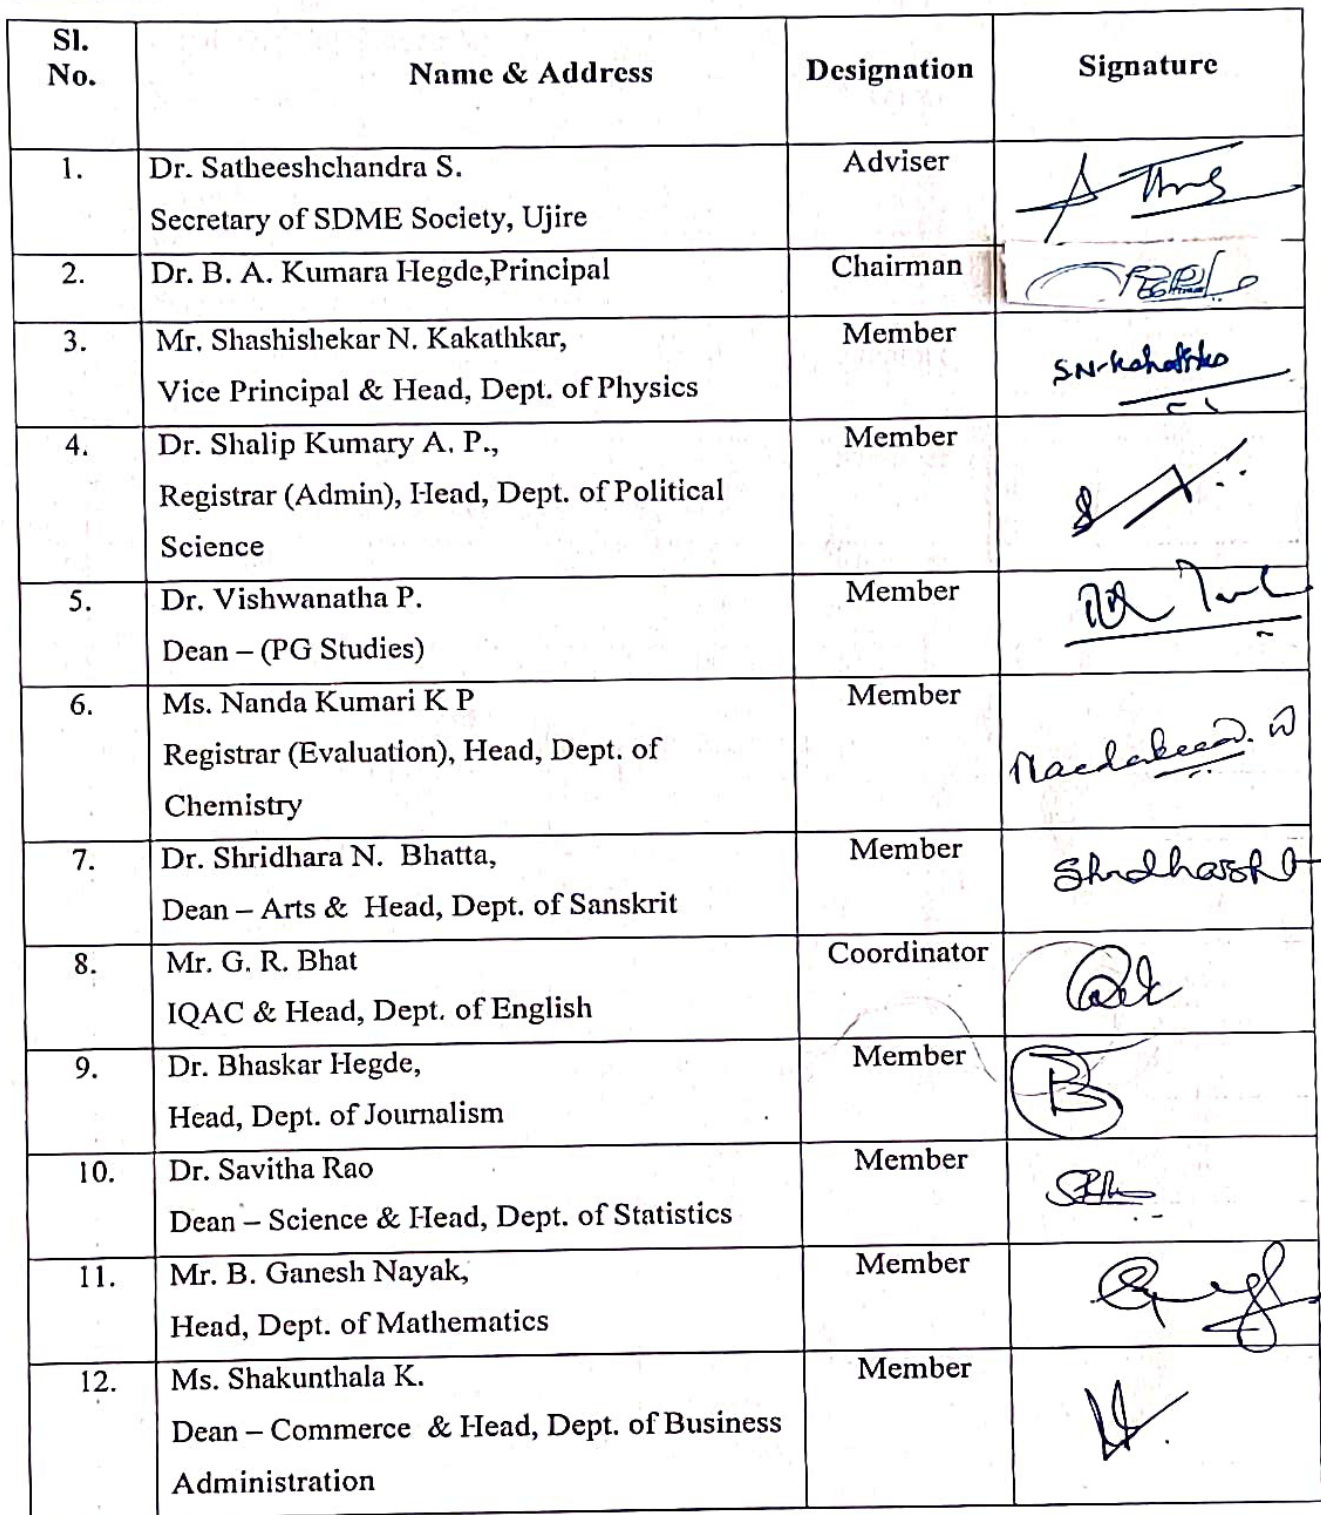 Sl.
No.
Name & Address
Designation
Signature
1.
Dr. Satheeshchandra S.
Secretary of SDME Society, Ujire
Adviser
2.
Dr. B. A. Kumara Hegde,Principal
Chairman
3.
Mr. Shashishekar N. Kakathkar,
Vice Principal & Head, Dept. of Physics
Member
4.
Dr. Shalip Kumary A. P.,
Registrar (Admin), Head, Dept. of Political
Science
Member
5.
Dr. Vishwanatha P.
Dean – (PG Studies)
Member
6.
Ms. Nanda Kumari K P
Registrar (Evaluation), Head, Dept. of
Chemistry
Member
7.
Dr. Shridhara N. Bhatta,
Dean – Arts & Head, Dept. of Sanskrit
Member
8.
Mr. G. R. Bhat
IQAC & Head, Dept. of English
Coordinator
9.
Dr. Bhaskar Hegde,
Head, Dept. of Journalism
Member
10.
Dr. Savitha Rao
Dean – Science & Head, Dept. of Statistics
Member
11.
Mr. B. Ganesh Nayak,
Head, Dept. of Mathematics
Member
12.
Ms. Shakunthala K.
Dean – Commerce & Head, Dept. of Business
Administration
Member